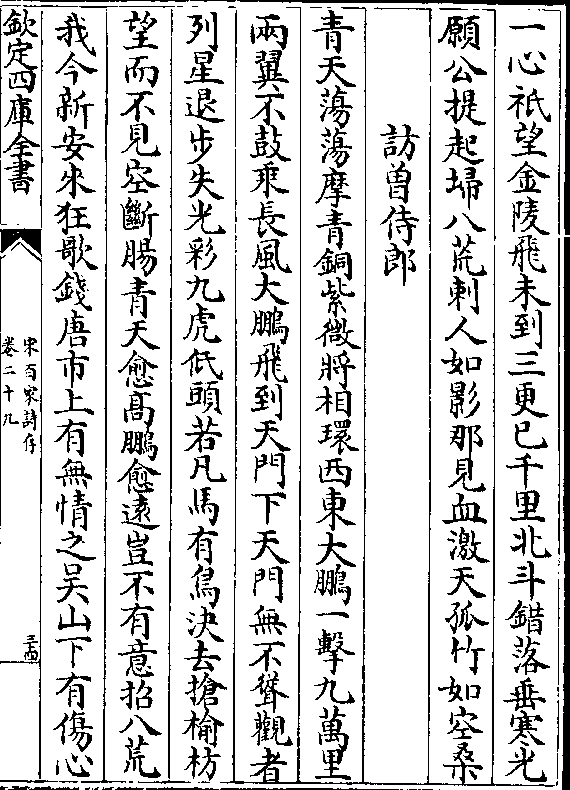 一心祇望金陵飛未到三更已千里北斗錯落垂寒光
願公提起埽八荒刺人如影那見血激天孤竹如空桑
訪曾侍郎
青天蕩蕩摩青銅紫微將相環西東大鵬一擊九萬里
兩翼不鼓乘長風大鵬飛到天門下天門無不聳觀者
列星退步失光彩九虎低頭若凡馬有鳥決去搶榆枋
望而不見空斷腸青天愈高鵬愈遠豈不有意招八荒
我今新安來狂歌錢唐市上有無情之吳山下有傷心
欽定四庫全書
宋百家詩存
卷二十九
三十四